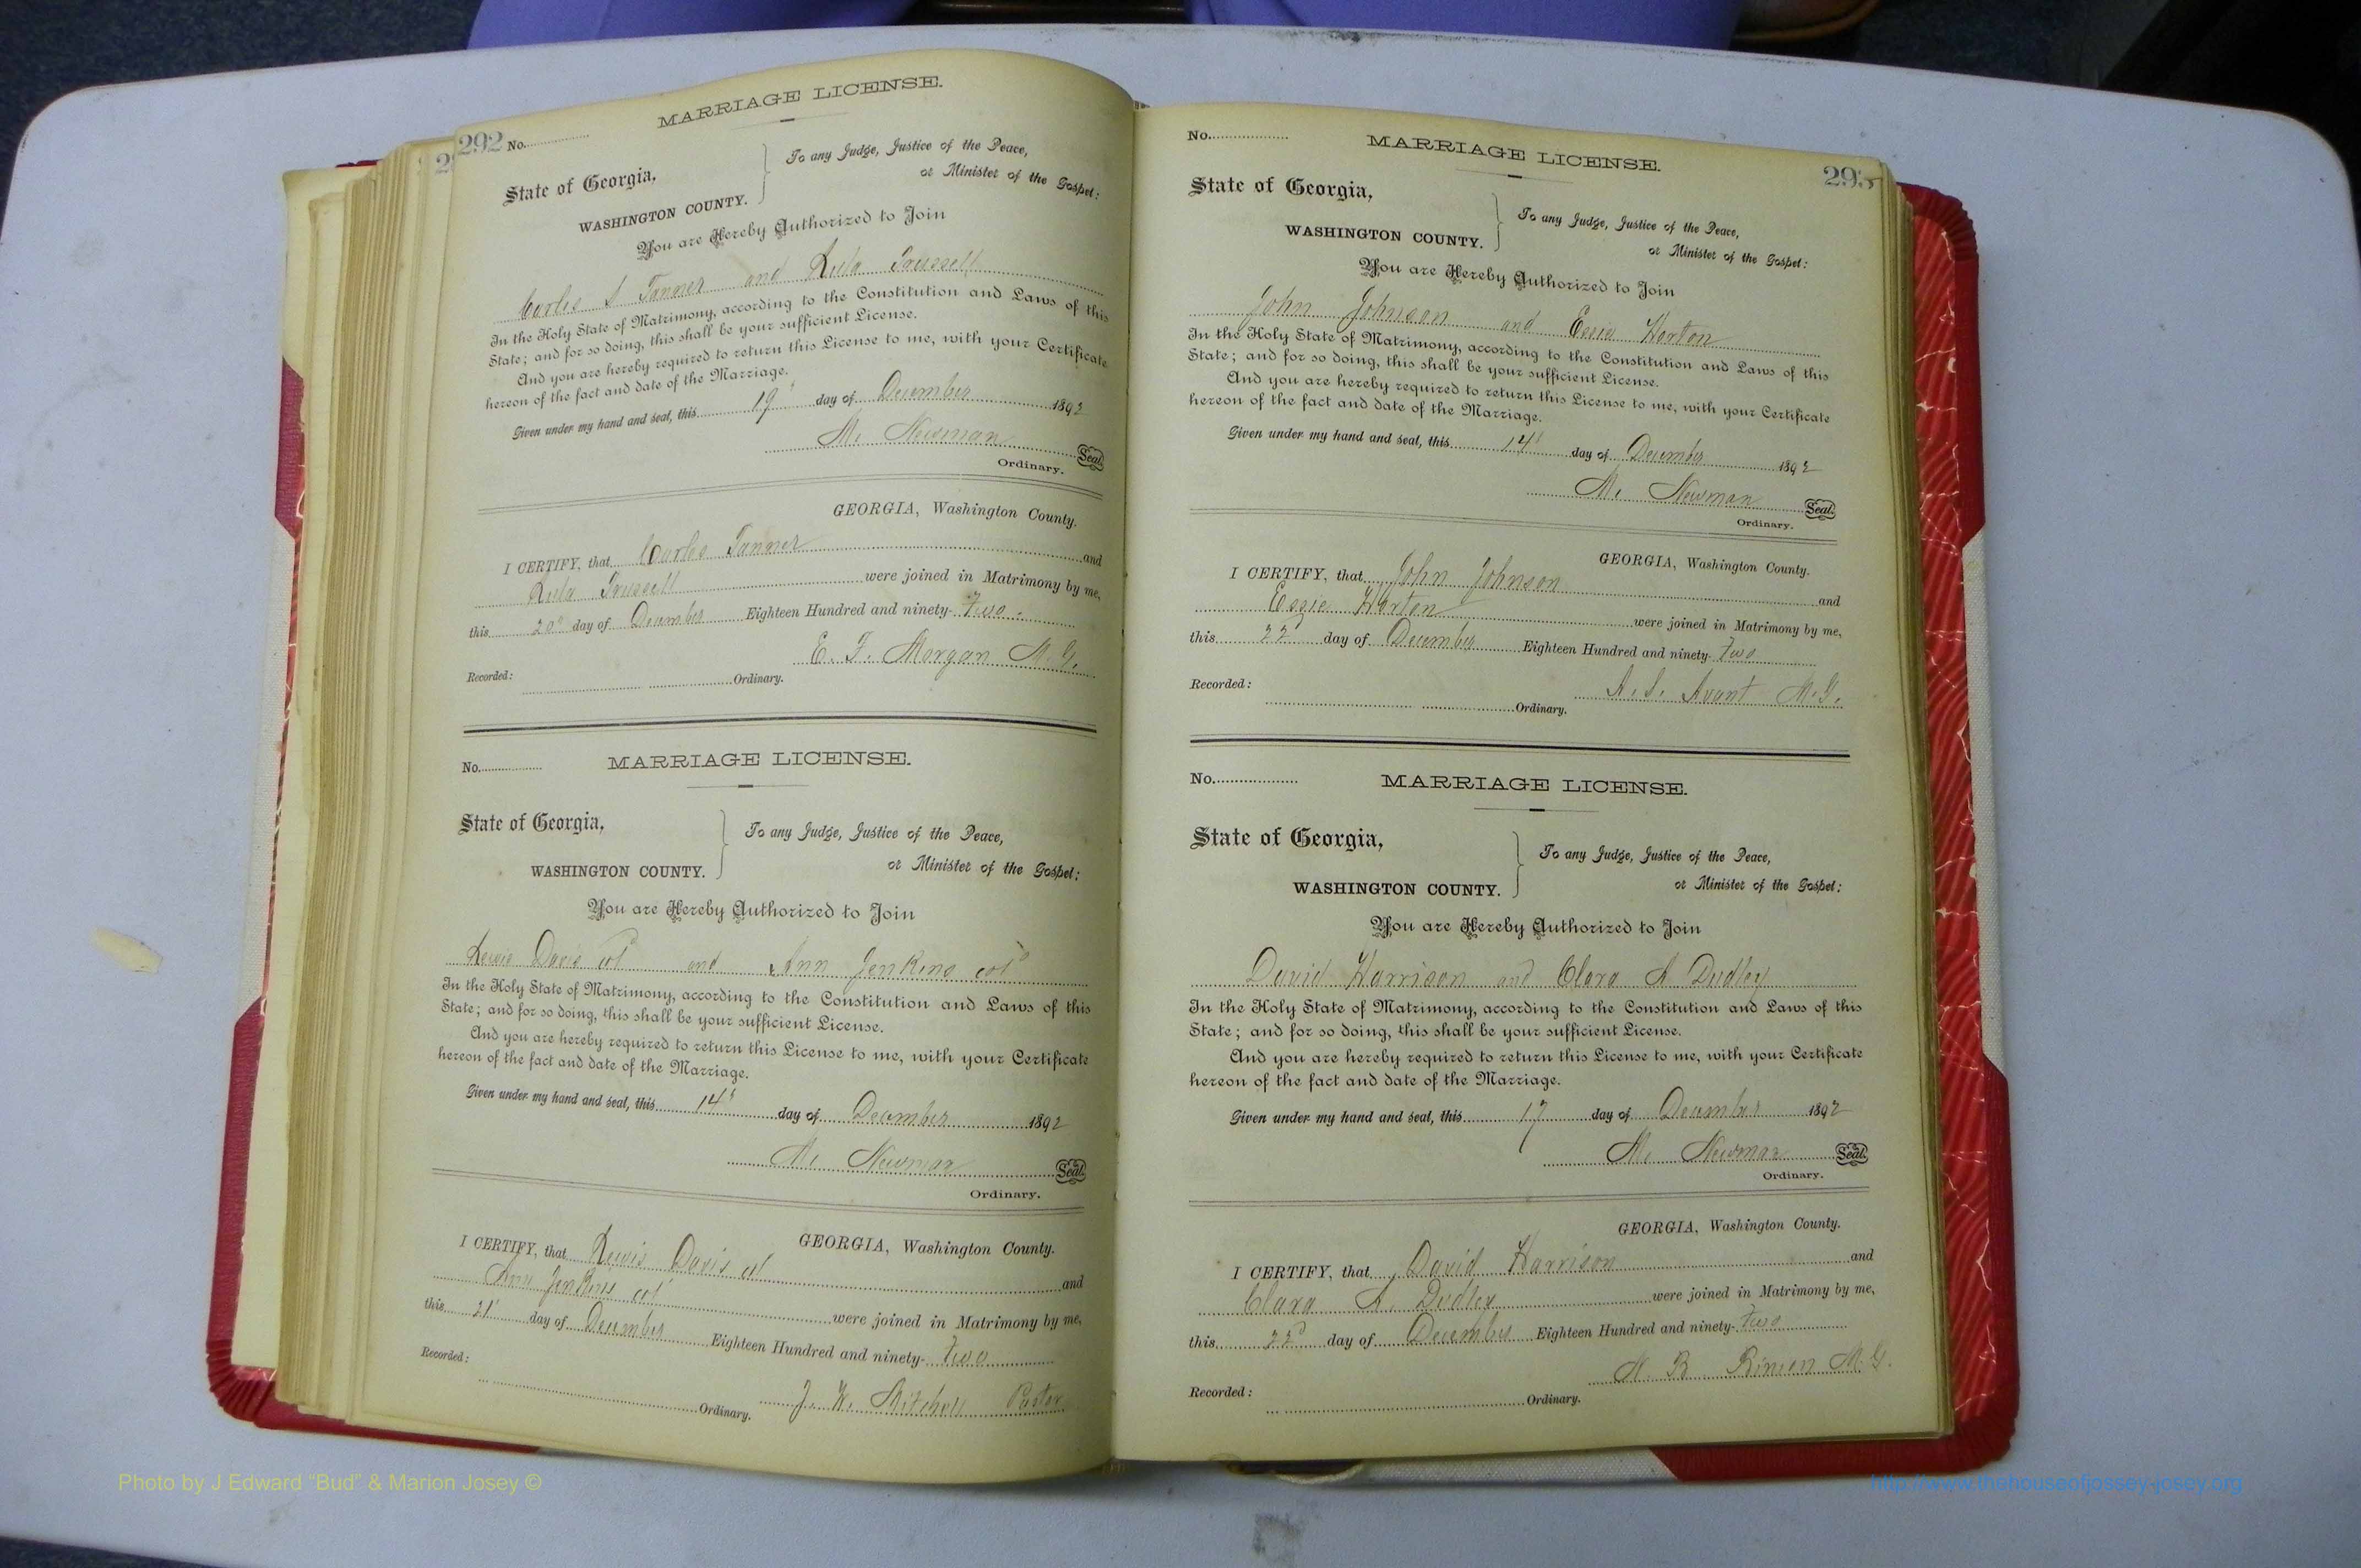 292
No.
MARRIAGE LICENSE.
State of Georgia,
WASHINGTON COUNTY.
To any Judge, Justice of the Peace,
or Minister of the Gospel:
You are Hereby Authorized to Join
Charles S Tanner and Lula Trussell
In the Holy State of Matrimony, according to the Constitution and Laws of this
State; and for so doing, this shall be your sufficient License.
And you are hereby required to return this License to me, with your Certificate
hereon of the fact and date of the Marriage.
Given under my hand and seal, this 19 day of December 1892
M. Newman Seal.
Ordinary.
GEORGIA, Washington County.
I CERTIFY, that Charles Tanner and
Lula Trussell were joined in Matrimony by me,
this 20" day of December Eighteen Hundred and ninety-Two.
E. F. Morgan M.G.
Recorded: Ordinary.
No.
MARRIAGE LICENSE.
State of Georgia,
WASHINGTON COUNTY.
To any Judge, Justice of the Peace,
or Minister of the Gospel:
You are Hereby Authorized to Join
Lewis Davis col and Ann Jenkins col
In the Holy State of Matrimony, according to the Constitution and Laws of this
State; and for so doing, this shall be your sufficient License.
And you are hereby required to return this License to me, with your Certificate
hereon of the fact and date of the Marriage.
Given under my hand and seal, this 14 day of December 1892
M. Newman Seal.
Ordinary.
GEORGIA, Washington County.
I CERTIFY, that Lewis Davis col and
Ann Jenkins col were joined in Matrimony by me,
this 21 day of December Eighteen Hundred and ninety-Two
J. W. Mitchell Pastor
Recorded: Ordinary.
No.
MARRIAGE LICENSE.
293
State of Georgia,
WASHINGTON COUNTY.
To any Judge, Justice of the Peace,
or Minister of the Gospel:
You are Hereby Authorized to Join
John Johnson and Essie Horton
In the Holy State of Matrimony, according to the Constitution and Laws of this
State; and for so doing, this shall be your sufficient License.
And you are hereby required to return this License to me, with your Certificate
hereon of the fact and date of the Marriage.
Given under my hand and seal, this 14 day of December 1892
M. Newman Seal.
Ordinary.
GEORGIA, Washington County.
I CERTIFY, that John Johnson and
Essie Horton were joined in Matrimony by me,
this 22 day of December Eighteen Hundred and ninety-Two
Avant M.G.
Recorded: Ordinary.
No.
MARRIAGE LICENSE.
State of Georgia,
WASHINGTON COUNTY.
To any Judge, Justice of the Peace,
or Minister of the Gospel:
You are Hereby Authorized to Join
David Harrison and Clara A Dudley
In the Holy State of Matrimony, according to the Constitution and Laws of this
State; and for so doing, this shall be your sufficient License.
And you are hereby required to return this License to me, with your Certificate
hereon of the fact and date of the Marriage.
Given under my hand and seal, this 17 day of December 1892
M. Newman Seal.
Ordinary.
GEORGIA, Washington County.
I CERTIFY, that David Harrison and
Clara A. Dudley were joined in Matrimony by me,
this 22d day of December Eighteen Hundred and ninety-Two
M.G.
Recorded: Ordinary.
Photo by J Edward “Bud” & Marion Josey ©
http://www.thehouseofjossey-josey.org